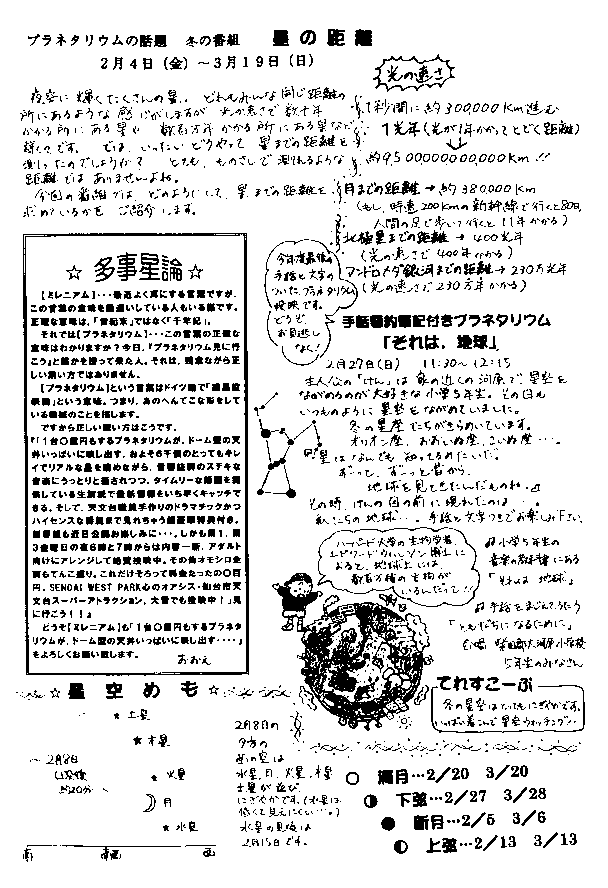 プラネタリウムの話題　冬の番組　星の距離
2月4日(金)～3月19日(日)
夜空に輝くたくさんの星、どれもみんな同じ距離の
所にあるような感じがしますが 光の速さで数十年
かかる所にある星や 数百万年かかる所にある星など
様々です。では、いったいどうやって 星までの距離を
測ったのでしょうか? とても、ものさしで測れるような
距離ではありませんよね。
今回の番組では、どのようにして、星までの距離を
求めているかを ご紹介します。
光の速さ
1秒間に約300,000Km進む
1光年(光が1年かかってとどく距離)
約9500000000000Km!!
月までの距離→約380000Km
(もし、時速200Kmの新幹線で行くと80日、
人間の足で歩いて行くと 11年かかる)
北極星までの距離→400光年
(光の速さで 400年かかる)
アンドロメダ銀河までの距離→230万光年
(光の速さで 230万年かかる)
☆ 多事星論 ☆
【ミレニアム】・・・最近よく耳にする言葉ですが、
この言葉の意味を勘違いしている人もいる様です。
正確な意味は、「世紀末」ではなく「千年紀」。
それでは【プラネタリウム】・・・この言葉の正確な
意味はわかりますか？今日、『プラネタリウム見に行
こう』と誰かを誘って来た人。それは、残念ながら正
しい使い方ではありません。
【プラネタリウム】という言葉はドイツ語で「惑星投
映機」という意味。つまり、あのへんてこな形をして
いる機械のことを指します。
ですから正しい使い方はこうです。
『「1台○億円もするプラネタリウムが、ドーム型の天
井いっぱいに映し出す、およそ6千個のとってもキレ
イでリアルな星を眺めながら、音響抜群のステキな
音楽にうっとりと癒されつつ、タイムリーな話題を提
供している生解説で最新情報をいち早くキャッチで
きる。そして、天文台職員手作りのドラマチックかつ
ハイセンスな番組まで見れちゃう超豪華特典付き。
新番組も近日公開お楽しみに・・・。しかも第1、第
3金曜日の夜6時と7時からは内容一新、アダルト
向けにアレンジして絶賛投映中。その他オモシロ企
画もてんこ盛り。これだけそろって料金たったの○百
円。SENDAI WEST PARK心のオアシス・仙台市天
文台スーパーアトラクション、大雪でも投映中！」見
に行こう！！』
どうぞ【ミレニアム】も「1台○億円もするプラネタ
リウムが、ドーム型の天井いっぱいに映し出す・・・・」
をよろしくお願い致します。
おおえ
今年度最後の
手話と文字の
ついたプラネタリウム
投映です。
どうぞ、
お見逃し
なく!
手話要約筆記付きプラネタリウム
「それは、地球」
2月27日(日)　11:30～12:15
主人公の「けん」は 家の近くの河原で 星空を
ながめるのが大好きな小学5年生。その日も
いつものように 星空をながめていました。
冬の星座たちがきらめいています。
オリオン座、おおいぬ座、こいぬ座…。
星はなんでも知ってるみたいだ。
ずっと、ずっと昔から、
地球を見てきたんだものね。
その時、けんの目の前に現れたのは…。
私たちの地球…。手話と文字つきでお楽しみ下さい。
ハーバード大学の生物学者
エドワード・ウィルソン博士に
よると、地球上には、
数百万種の生物が
いるんだって!!
小学5年生の
音楽の教科書にある
「それは 地球」
手話をまじえてうたう
「ともだちになるために」
5年生のみなさん
てれすこーぷ
冬の星空はとってもにぎやかです。
いっぱい着こんで星空ウォッチング！
☆ 星空めも ☆
土星
木星
2月8日
日没後
約20分
火星
月
水星
南　南西　西
2月8日の
夕方の
西の空は
水星、月、火星、木星
土星が並び、
にぎやかです。(水星は
低くて見えにくい…。)
水星の見頃は
2月15日です。
○ 満月…2/20　3/20
下弦…2/27　3/28
● 新月…2/5　3/6
上弦…2/13　3/13